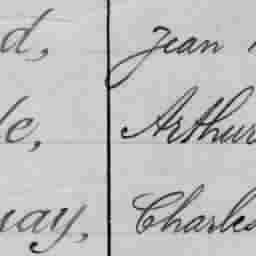 d, Jean
le, Arthur
uay, Charles